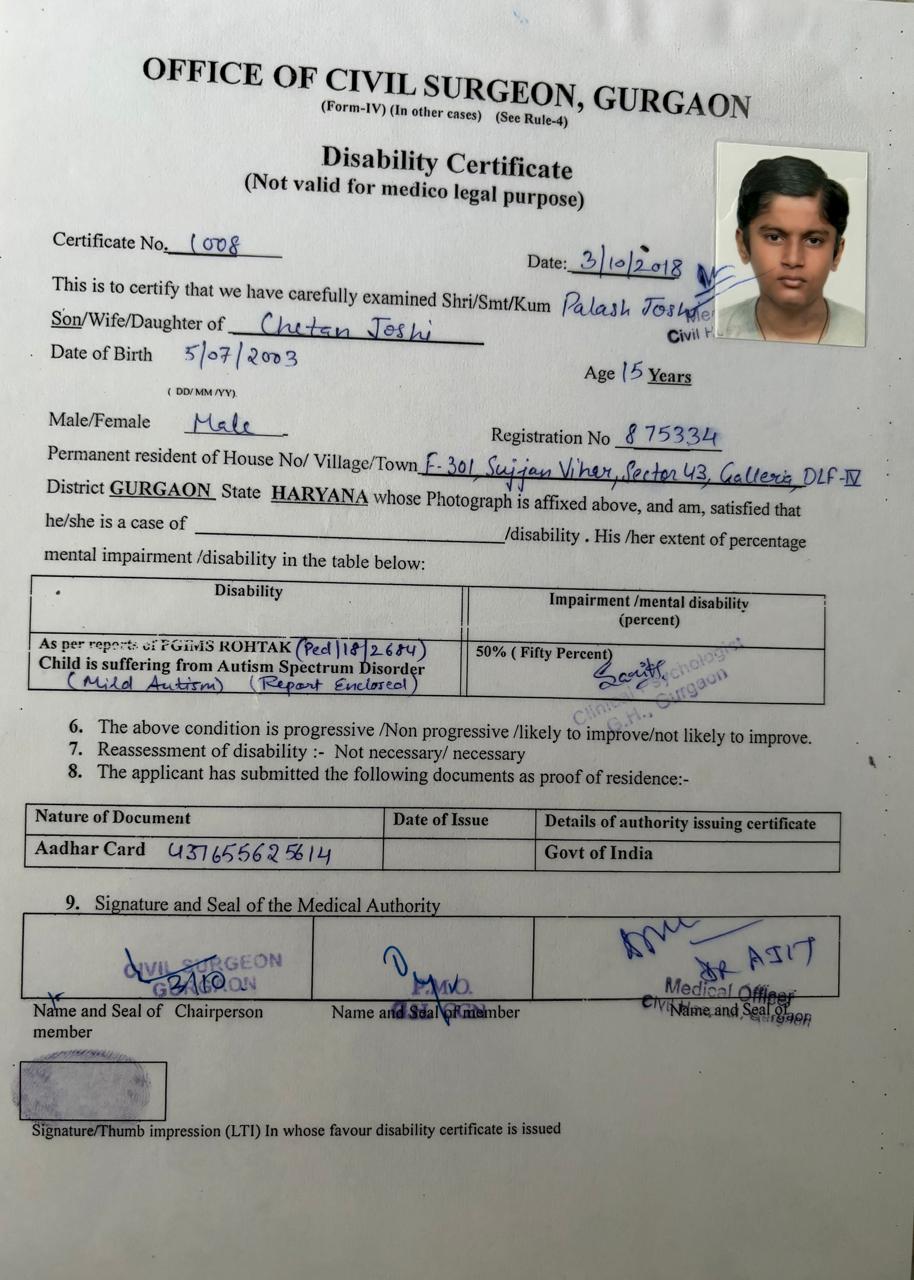 OFFICE OF CIVIL SURGEON, GURGAON
(Form-IV) (In other cases) (See Rule-4)
Disability Certificate
(Not valid for medico legal purpose)
Certificate No. 1008
Date: 3/10/2018
This is to certify that we have carefully examined Shri/Smt/Kum Palash Joshi
Civil H
Son/Wife/Daughter of Chetan Joshi
Date of Birth 5/07/2003
Age 15 Years
( DD/ MM /YY)
Male/Female Male
Registration No 875334
Permanent resident of House No/ Village/Town F-301, Sujjan Viher, Sector 43, Galleria, DLF-IV
District GURGAON State HARYANA whose Photograph is affixed above, and am, satisfied that
he/she is a case of /disability . His /her extent of percentage
mental impairment /disability in the table below:
Disability
Impairment /mental disability
(percent)
As per reports of PGIMS ROHTAK (Ped/18/2684)
Child is suffering from Autism Spectrum Disorder
(Mild Autism) (Report Enclosed)
50% ( Fifty Percent)
Clinical Psychologist
G.H., Gurgaon
6. The above condition is progressive /Non progressive /likely to improve/not likely to improve.
7. Reassessment of disability :- Not necessary/ necessary
8. The applicant has submitted the following documents as proof of residence:-
Nature of Document Date of Issue Details of authority issuing certificate
Aadhar Card 437655625614 Govt of India
9. Signature and Seal of the Medical Authority
CIVIL SURGEON
GURGAON
3/10
P.M.O.
DR AJIT
Medical Officer
Civil Gurgaon
Name and Seal of Chairperson
member
Name and Seal of member
Name and Seal of
Signature/Thumb impression (LTI) In whose favour disability certificate is issued